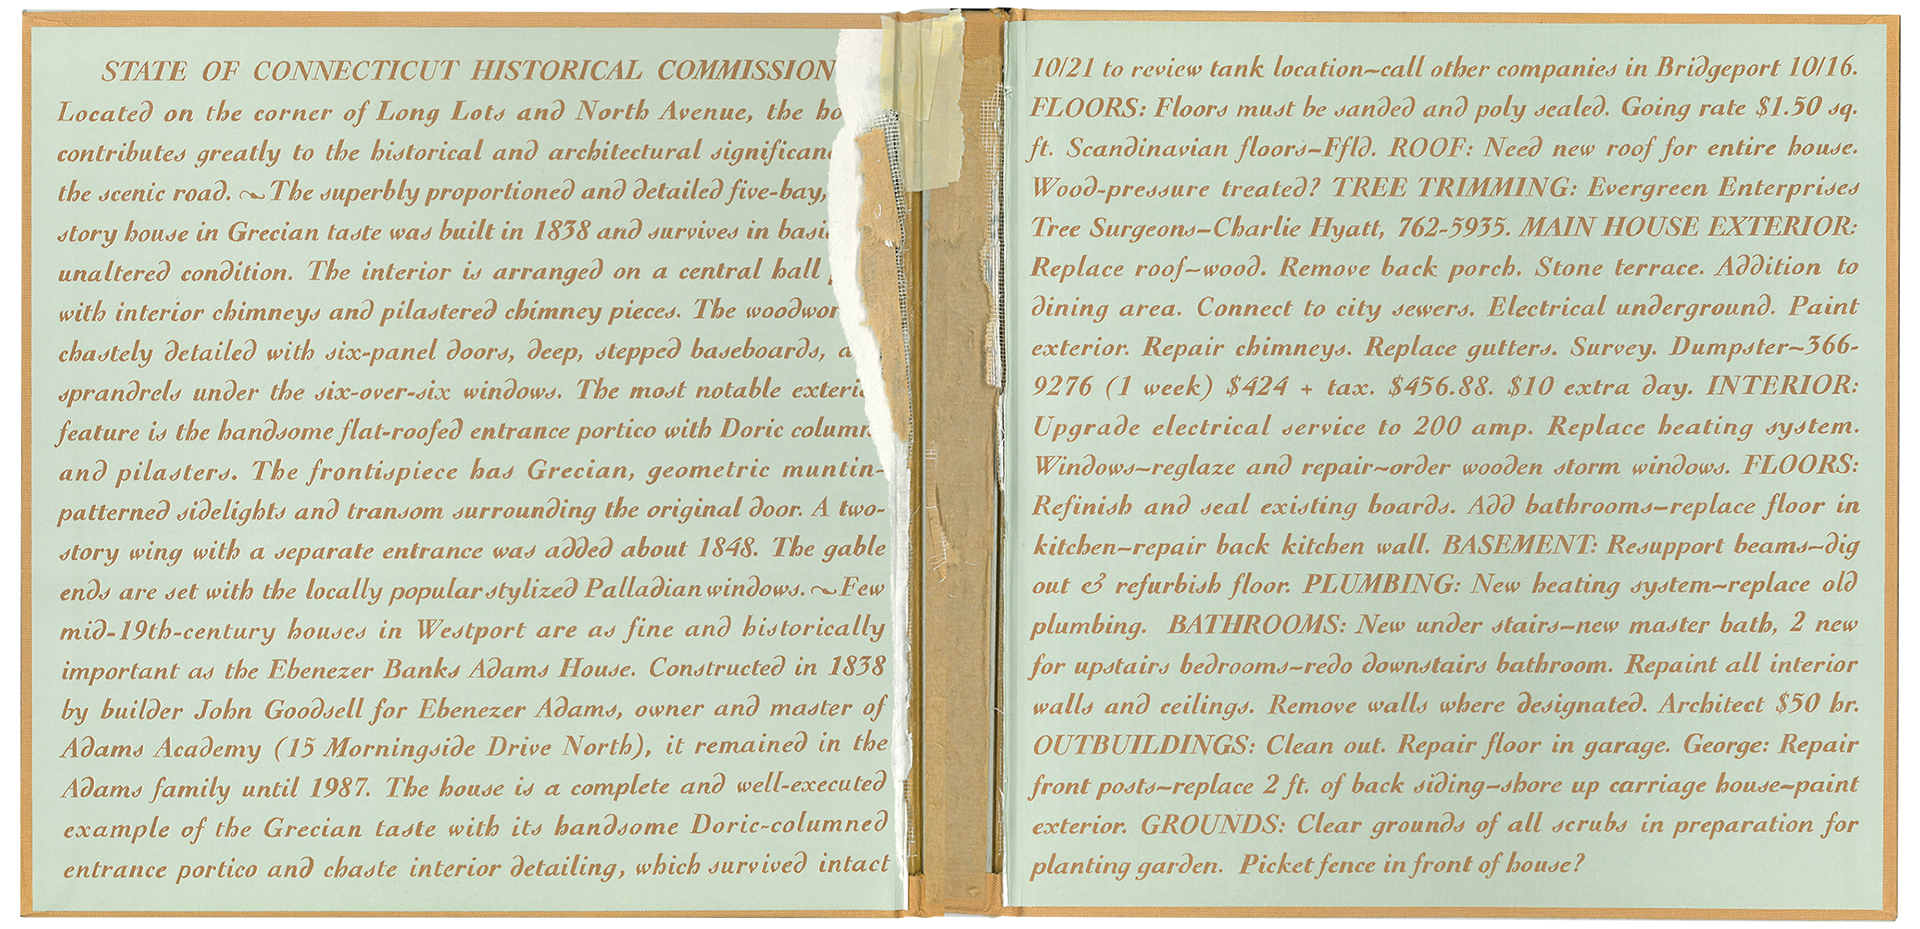 STATE OF CONNECTICUT HISTORICAL COMMISSION
Located on the corner of Long Lots and North Avenue, the
contributes greatly to the historical and architectural
the scenic road. ~The superbly proportioned and detailed five-bay,
story house in Grecian taste was built in 1838 and survives in
unaltered condition. The interior is arranged on a central hall
with interior chimneys and pilastered chimney pieces. The
chastely detailed with six-panel doors, deep, stepped baseboards,
sprandrels under the six-over-six windows. The most notable
feature is the handsome flat-roofed entrance portico with Doric
and pilasters. The frontispiece has Grecian, geometric muntin-
patterned sidelights and transom surrounding the original door. A two-
story wing with a separate entrance was added about 1848. The gable
ends are set with the locally popular stylized Palladian windows. ~Few
mid-19th-century houses in Westport are as fine and historically
important as the Ebenezer Banks Adams House. Constructed in 1838
by builder John Goodsell for Ebenezer Adams, owner and master of
Adams Academy (15 Morningside Drive North), it remained in the
Adams family until 1987. The house is a complete and well-executed
example of the Grecian taste with its handsome Doric-columned
entrance portico and chaste interior detailing, which survived intact
10/21 to review tank location~call other companies in Bridgeport 10/16.
FLOORS: Floors must be sanded and poly sealed. Going rate $1.50 sq.
ft. Scandinavian floors–Ffld. ROOF: Need new roof for entire house.
Wood-pressure treated? TREE TRIMMING: Evergreen Enterprises
Tree Surgeons–Charlie Hyatt, 762-5935. MAIN HOUSE EXTERIOR:
Replace roof~wood. Remove back porch. Stone terrace. Addition to
dining area. Connect to city sewers. Electrical underground. Paint
exterior. Repair chimneys. Replace gutters. Survey. Dumpster~366-
9276 (1 week) $424 + tax. $456.88. $10 extra day. INTERIOR:
Upgrade electrical service to 200 amp. Replace heating system.
Windows~reglaze and repair~order wooden storm windows. FLOORS:
Refinish and seal existing boards. Add bathrooms~replace floor in
kitchen~repair back kitchen wall. BASEMENT: Resupport beams~dig
out & refurbish floor. PLUMBING: New heating system~replace old
plumbing. BATHROOMS: New under stairs~new master bath, 2 new
for upstairs bedrooms~redo downstairs bathroom. Repaint all interior
walls and ceilings. Remove walls where designated. Architect $50 hr.
OUTBUILDINGS: Clean out. Repair floor in garage. George: Repair
front posts~replace 2 ft. of back siding~shore up carriage house~paint
exterior. GROUNDS: Clear grounds of all scrubs in preparation for
planting garden. Picket fence in front of house?